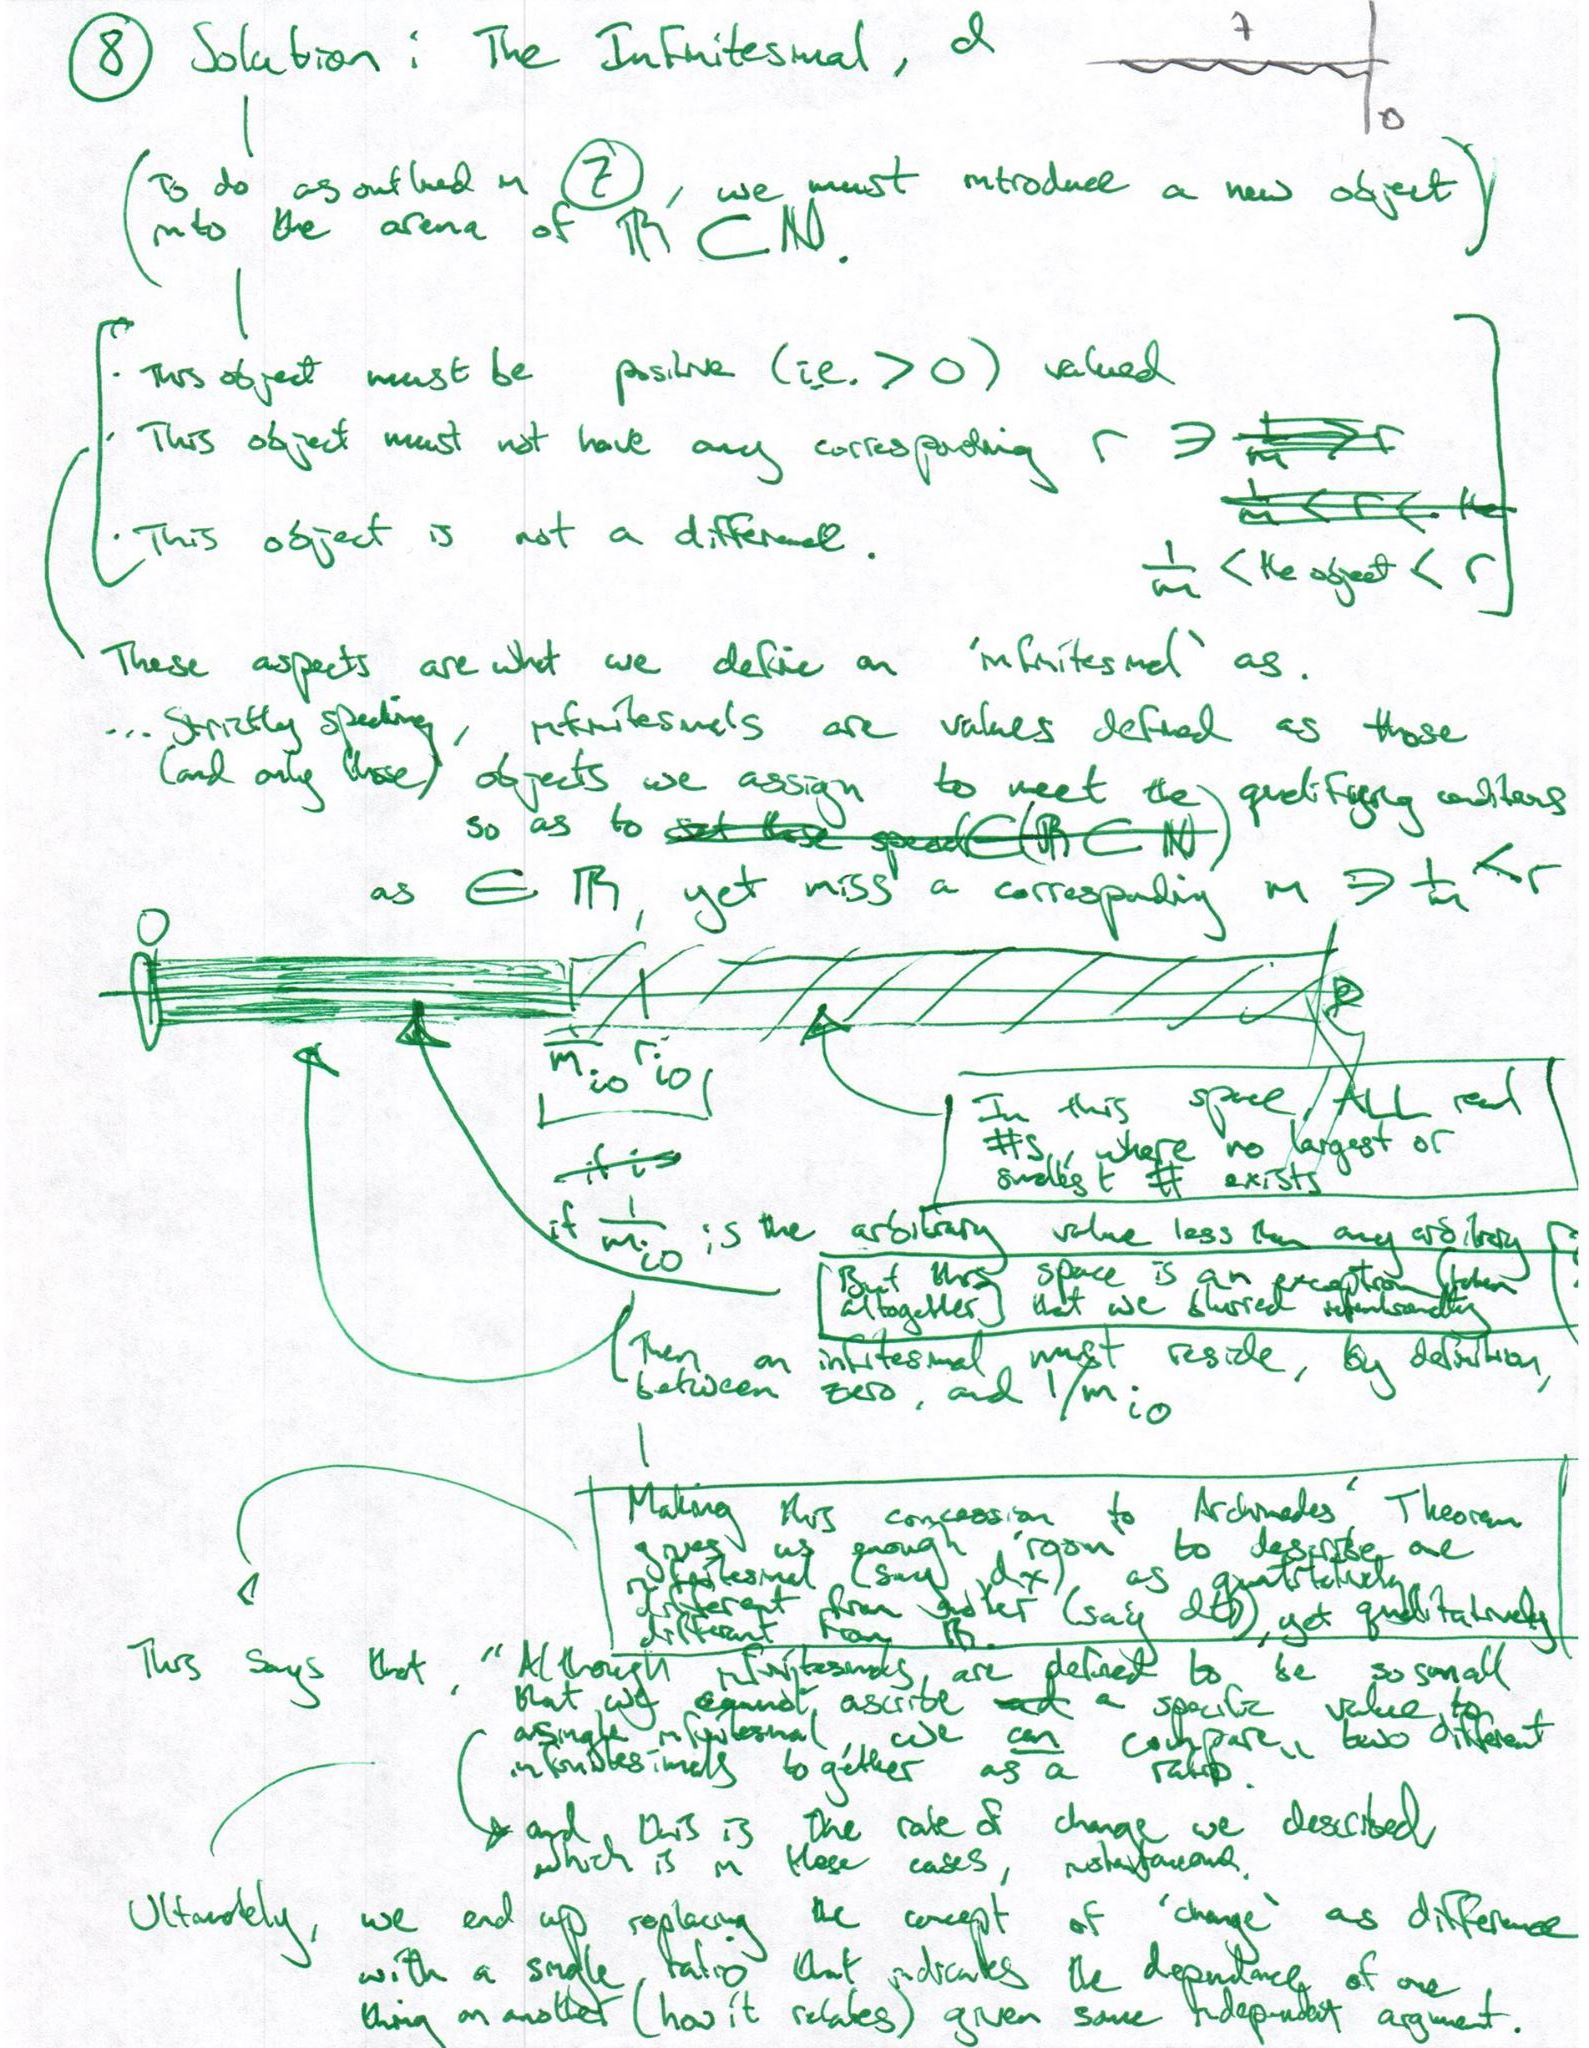 ⑧ Solution: The Infinitesimal, d
7
0
(To do as outlined in ⑦, we must introduce a new object
into the arena of ℝ ⊂ ℕ.)
· This object must be positive (i.e. > 0) valued
· This object must not have any corresponding r ∋
· This object is not a difference.
1/m < the object < r
These aspects are what we define an 'infinitesimal' as.
... Strictly speaking, infinitesimals are values defined as those
(and only those) objects we assign to meet the qualifying conditions
so as to
as ∈ ℝ, yet miss a corresponding m ∋ 1/m < r
0
1/m io r io
In this space, ALL real
#s, where no largest or
smallest # exists
if is
if 1/m io is the arbitrary value less than any arbitrary
But this space is an exception (taken
altogether) that we blurred intentionally
Then an infitesimal must reside, by definition,
between zero, and 1/m io
Making this concession to Archimedes' Theorem
gives us enough 'room' to describe one
infitesimal (say dx) as quantitatively
different from another (say dt), yet qualitatively
different from ℝ.
This says that, "Although infinitesimals are defined to be so small
that we cannot ascribe a specific value to
a single infinitesimal, we can compare two different
infinitesimals together as a ratio."
and this is the rate of change we described,
which is in these cases, instantaneous.
Ultimately, we end up replacing the concept of 'change' as difference
with a single ratio that indicates the dependance of one
thing on another (how it relates) given some independent argument.